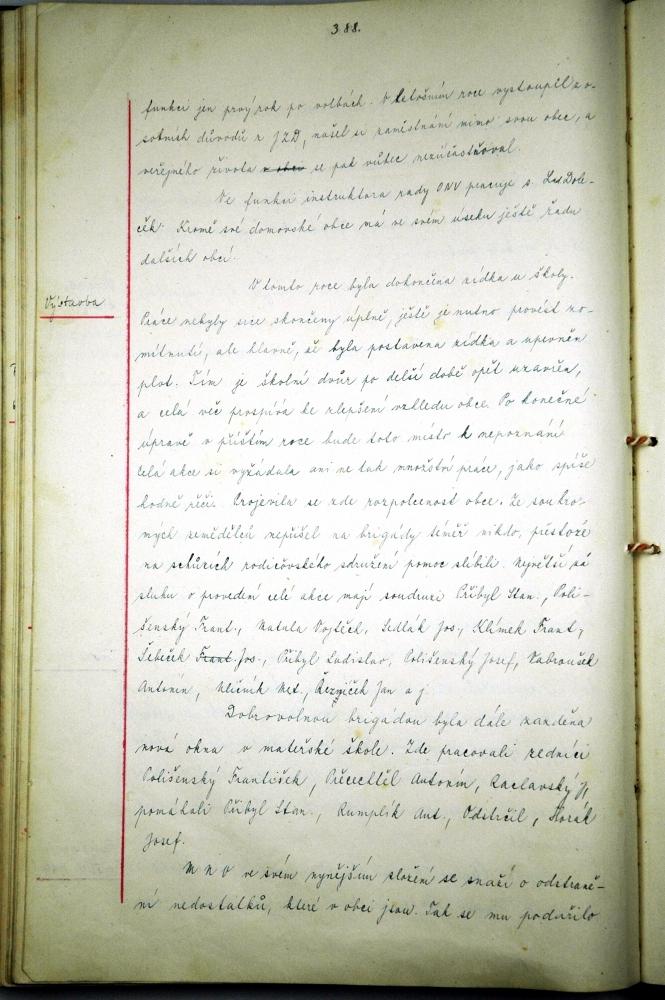 388.
funkci jen prvý rok po volbách. V letošním roce vystoupil z o-
sobních důvodů z JZD, našel si zaměstnání mimo svou obec, a
veřejného života v obci se pak vůbec nezúčastňoval.
Ve funkci instruktora rady ONV pracuje s. Lad Dole-
ček. Kromě své domovské obce má ve svém úseku ještě řadu
dalších obcí.
V tomto roce byla dokončena zídka u školy.
Výstavba
Práce nebyly sice skončeny úplně, ještě je nutno provést zo-
mítnutí, ale hlavně, že byla postavena zídka a upevněn
plot. Tím je školní dvůr po delší době opět uzavřen,
a celá věc prospívá ke zlepšení vzhledu obce. Po konečné
úpravě v příštím roce bude toto místo k nepoznání
Celá akce si vyžádala ani ne tak množství práce, jako spíše
hodně řečí. Projevila se zde rozpolcenost obce. Ze soukro-
mých zemědělců nepřišel na brigády téměř nikdo, přestože
na schůzích rodičovského sdružení pomoc slíbili. Největší zá
sluhu o provedení celé akce mají soudruzi Přibyl Stan., Poli-
šenský Frant., Matula Vojtěch, Sedlák Jos., Klimek Frant,
Šebeček Frant. Jos., Přibyl Ladislav, Polišenský Josef, Vabroušek
Antonín, Uličník Met., Řezníček Jan a j.
Dobrovolnou brigádou byla dále zanděna
nová okna v mateřské škole. Zde pracovali zedníci
Polišenský František, Přecechtěl Antonín, Raclavský J,
pomáhali Přibyl Stan., Rumplík Ant., Odstrčil, Horák
Josef.
M N V ve svém nynějším složení se snaží o odstraně-
ní nedostatků, které v obci jsou. Tak se mu podařilo